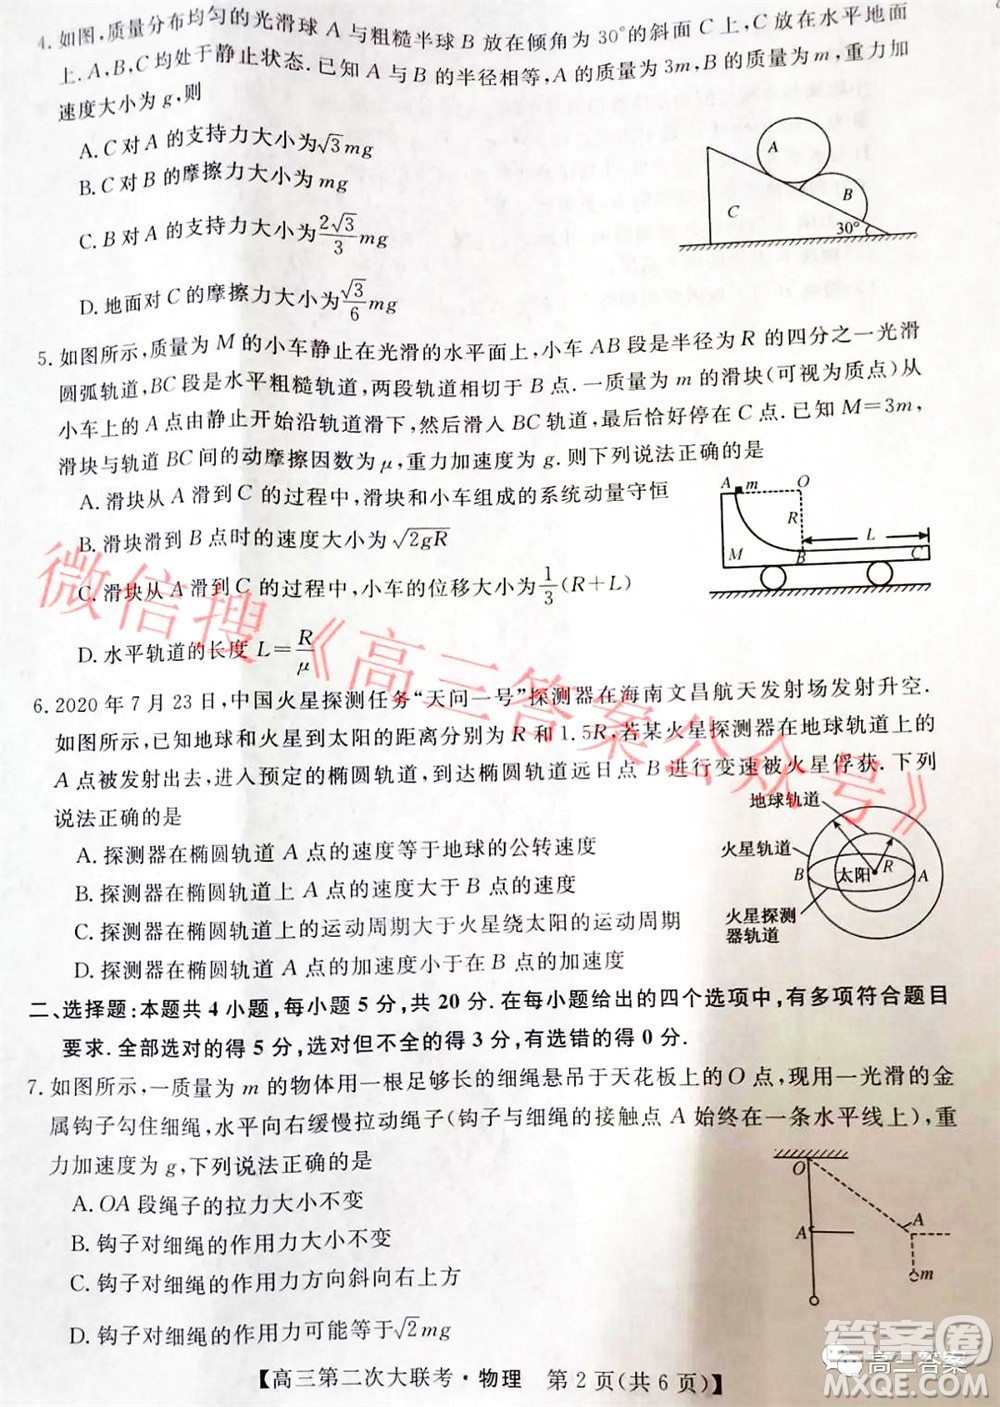 4. 如图,质量分布均匀的光滑球 A 与粗糙半球 B 放在倾角为 30°的斜面 C 上,C 放在水平地面
上. A,B,C 均处于静止状态. 已知 A 与 B 的半径相等,A 的质量为 3m,B 的质量为 m,重力加
速度大小为 g,则
A. C 对 A 的支持力大小为√3mg
B. C 对 B 的摩擦力大小为 mg
C. B 对 A 的支持力大小为2√3/3 mg
D. 地面对 C 的摩擦力大小为√3/6 mg
A
B
C
30°
5. 如图所示,质量为 M 的小车静止在光滑的水平面上,小车 AB 段是半径为 R 的四分之一光滑
圆弧轨道,BC 段是水平粗糙轨道,两段轨道相切于 B 点. 一质量为 m 的滑块(可视为质点)从
小车上的 A 点由静止开始沿轨道滑下,然后滑入 BC 轨道,最后恰好停在 C 点. 已知 M=3m,
滑块与轨道 BC 间的动摩擦因数为 μ,重力加速度为 g. 则下列说法正确的是
A. 滑块从 A 滑到 C 的过程中,滑块和小车组成的系统动量守恒
B. 滑块滑到 B 点时的速度大小为√2gR
C. 滑块从 A 滑到 C 的过程中,小车的位移大小等于1/3(R+L)
D. 水平轨道的长度 L=R/μ
A m O
R
L
M B C
6. 2020 年 7 月 23 日,中国火星探测任务“天问一号”探测器在海南文昌航天发射场发射升空.
如图所示,已知地球和火星到太阳的距离分别为 R 和 1.5R,若某火星探测器在地球轨道上的
A 点被发射出去,进入预定的椭圆轨道,到达椭圆轨道远日点 B 进行变速被火星俘获. 下列
说法正确的是
A. 探测器在椭圆轨道 A 点的速度等于地球的公转速度
B. 探测器在椭圆轨道上 A 点的速度大于在 B 点的速度
C. 探测器在椭圆轨道上的运动周期大于火星绕太阳的运动周期
D. 探测器在椭圆轨道 A 点的加速度小于在 B 点的加速度
地球轨道
火星轨道
B 太阳 R A
火星探测
器轨道
二、选择题:本题共 4 小题,每小题 5 分,共 20 分. 在每小题给出的四个选项中,有多项符合题目
要求. 全部选对的得 5 分,选对但不全的得 3 分,有选错的得 0 分.
7. 如图所示,一质量为 m 的物体用一根足够长的细绳悬吊于天花板上的 O 点,现用一光滑的金
属钩子勾住细绳,水平向右缓慢拉动绳子(钩子与细绳的接触点 A 始终在一条水平线上),重
力加速度为 g,下列说法正确的是
A. OA 段绳子的拉力大小不变
B. 钩子对细绳的作用力大小不变
C. 钩子对细绳的作用力方向斜向右上方
D. 钩子对细绳的作用力可能等于√2mg
O
A
A
m
【高三第二次大联考·物理 第 2 页(共 6 页)】
微信搜《高三答案公众号》
答案圈
高三答案